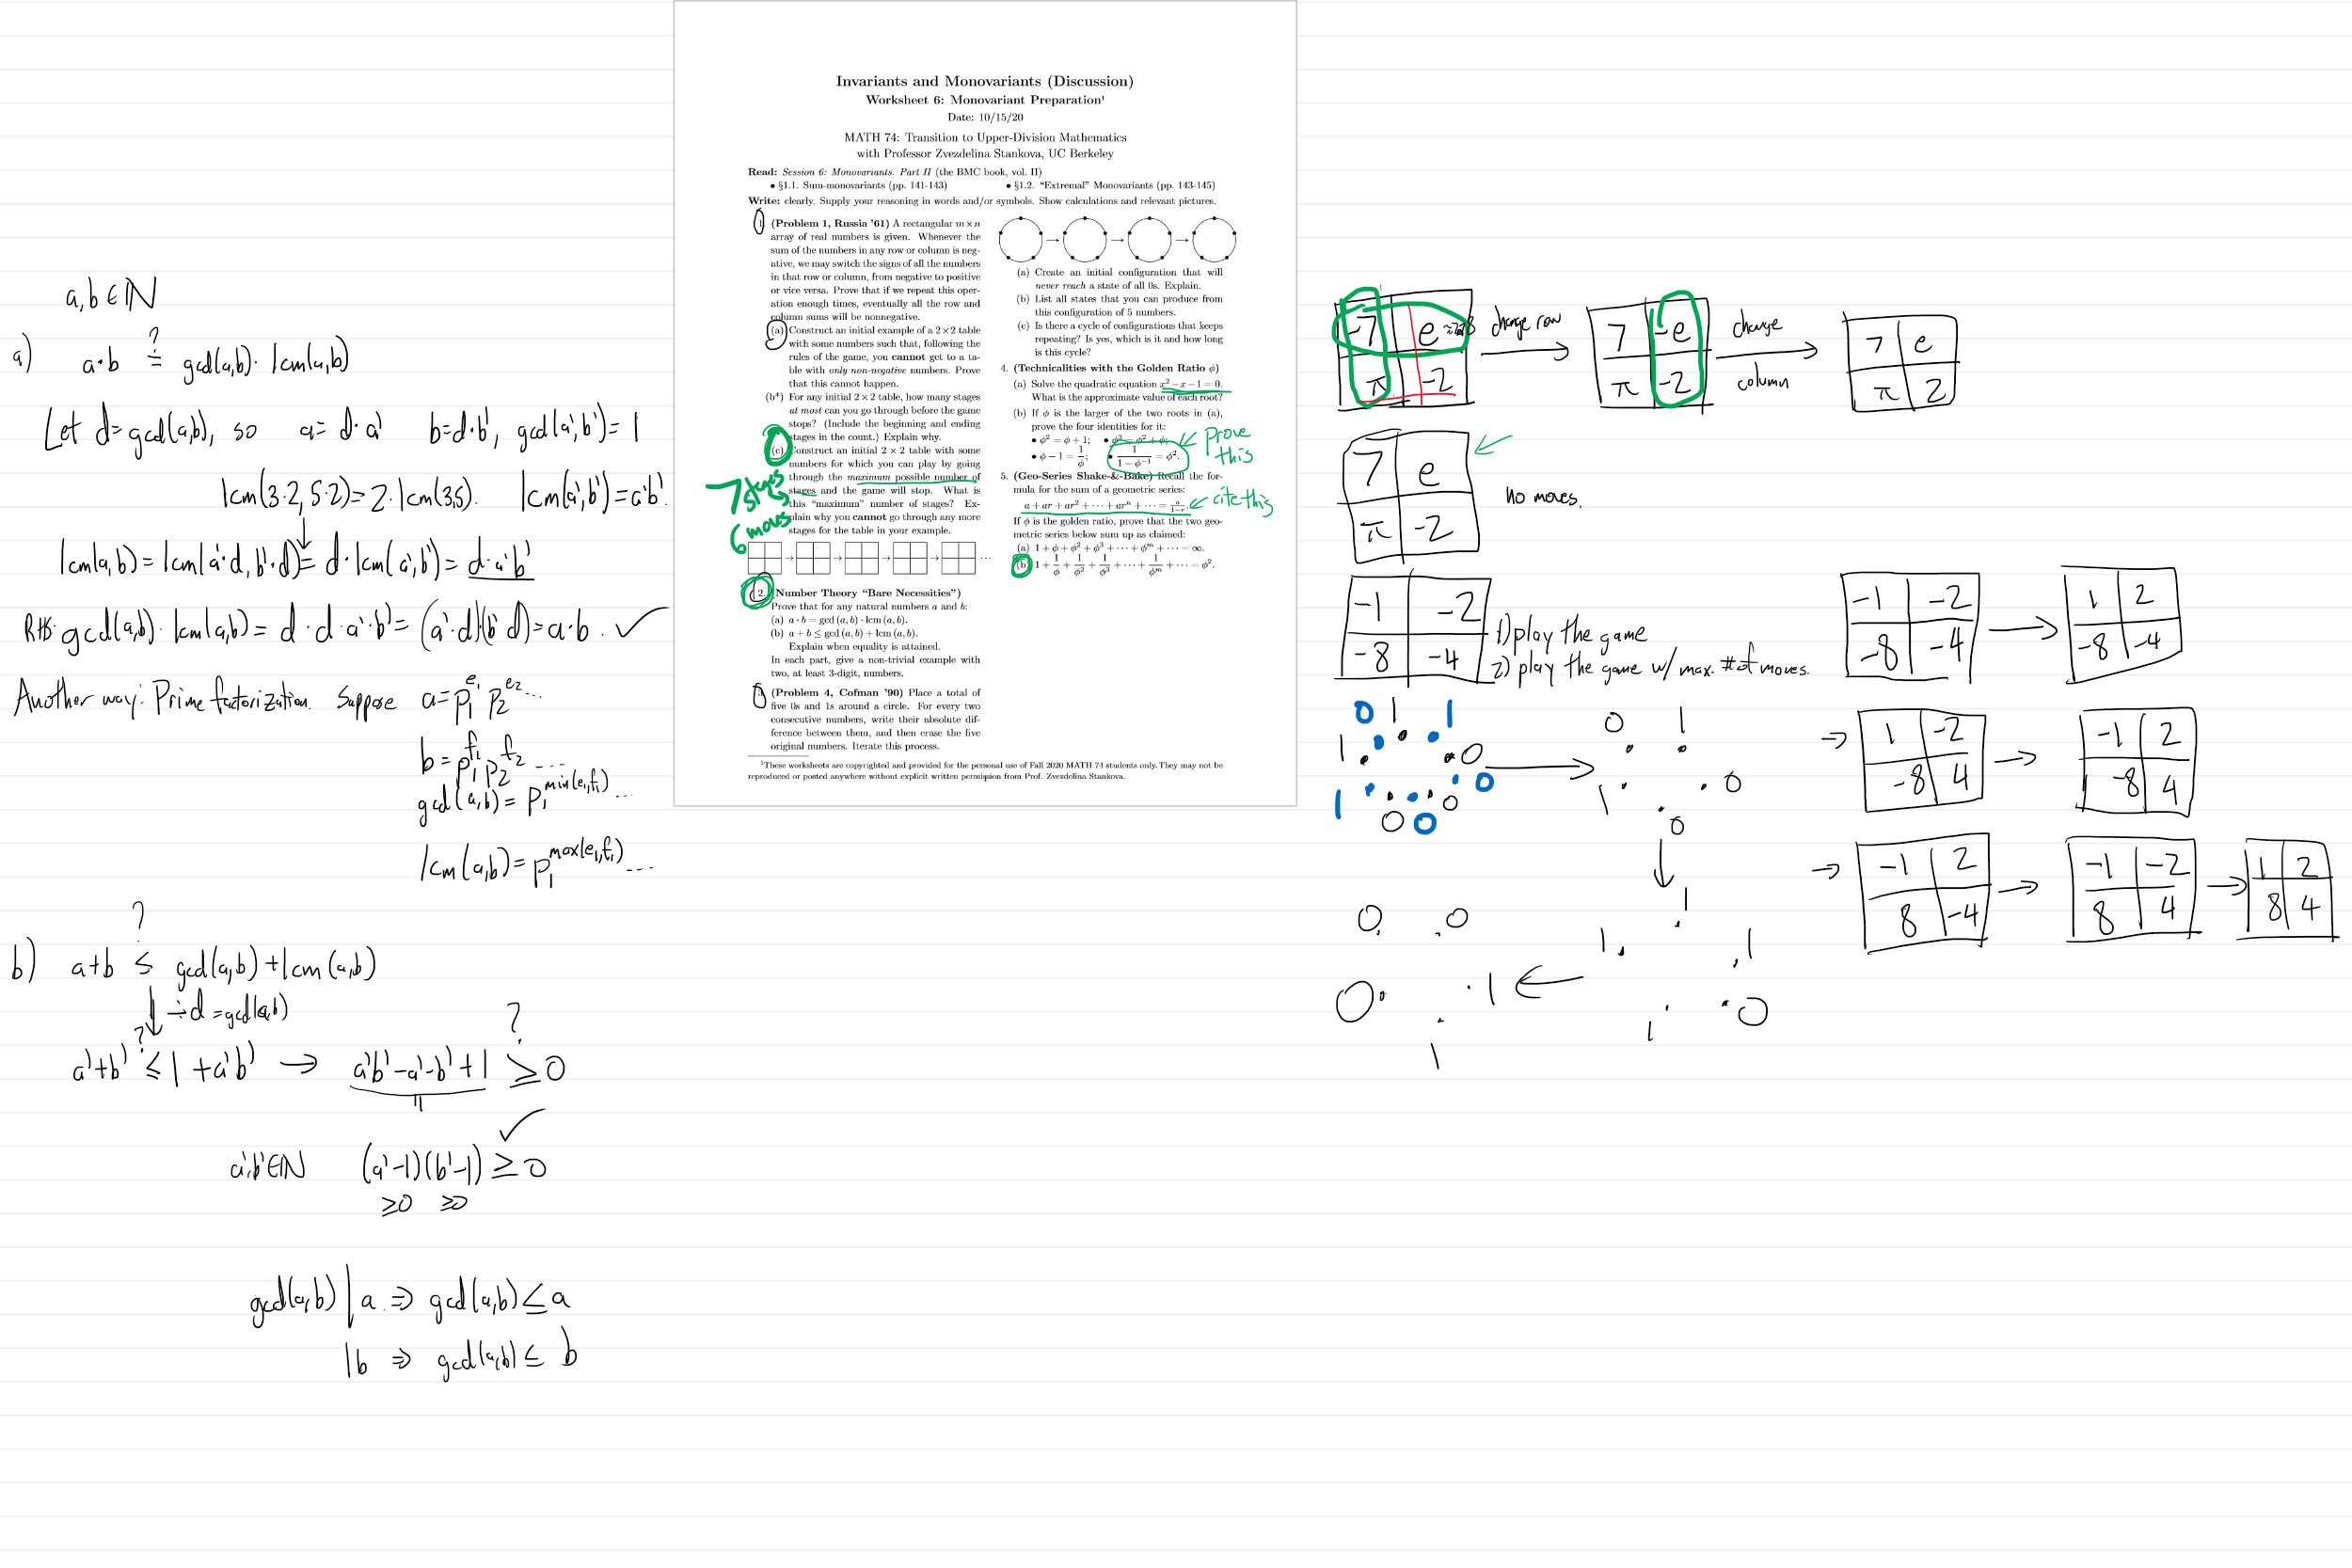 a,b ∈ ℕ
a) a·b ≟ gcd(a,b)· lcm(a,b)
Let d=gcd(a,b), so a= d·a' b=d·b', gcd(a',b')=1
lcm(3·2, 5·2)=2·lcm(3,5). lcm(a',b')=a'b'.
lcm(a,b)=lcm(a'·d, b'·d)= d·lcm(a',b')= d·a'·b'
RHS: gcd(a,b)· lcm(a,b)= d·d·a'·b'= (a'·d)(b'd)=a·b. ✓
Another way: Prime factorization. Suppose a=p₁^e₁ p₂^e₂...
b=p₁^f₁ p₂^f₂ ....
gcd(a,b)= p₁^min(e₁,f₁) ...
lcm(a,b)= p₁^max(e₁,f₁) ...
?
b) a+b ≤ gcd(a,b)+lcm(a,b)
↓ ÷d =gcd(a,b)
? ?
a'+b' ≤ 1+a'b' → a'b'-a'-b'+1 ≥ 0
"
✓
a',b'∈ℕ (a'-1)(b'-1) ≥ 0
≥0 ≥0
gcd(a,b) | a ⇒ gcd(a,b) ≤ a
| b ⇒ gcd(a,b) ≤ b
Invariants and Monovariants (Discussion)
Worksheet 6: Monovariant Preparation¹
Date: 10/15/20
MATH 74: Transition to Upper-Division Mathematics
with Professor Zvezdelina Stankova, UC Berkeley
Read: Session 6: Monovariants. Part II (the BMC book, vol. II)
• §1.1. Sum-monovariants (pp. 141-143) • §1.2. “Extremal” Monovariants (pp. 143-145)
Write: clearly. Supply your reasoning in words and/or symbols. Show calculations and relevant pictures.
1. (Problem 1, Russia ’61) A rectangular m × n
array of real numbers is given. Whenever the
sum of the numbers in any row or column is neg-
ative, we may switch the signs of all the numbers
in that row or column, from negative to positive
or vice versa. Prove that if we repeat this oper-
ation enough times, eventually all the row and
column sums will be nonnegative.
(a) Construct an initial example of a 2 × 2 table
with some numbers such that, following the
rules of the game, you cannot get to a ta-
ble with only non-negative numbers. Prove
that this cannot happen.
(b*) For any initial 2 × 2 table, how many stages
at most can you go through before the game
stops? (Include the beginning and ending
stages in the count.) Explain why.
(c) Construct an initial 2 × 2 table with some
numbers for which you can play by going
through the maximum possible number of
stages and the game will stop. What is
this “maximum” number of stages? Ex-
plain why you cannot go through any more
stages for the table in your example.
7 stages
6 moves
→ → → → ...
2. (Number Theory “Bare Necessities”)
Prove that for any natural numbers a and b:
(a) a · b = gcd (a, b) · lcm (a, b).
(b) a + b ≤ gcd (a, b) + lcm (a, b).
Explain when equality is attained.
In each part, give a non-trivial example with
two, at least 3-digit, numbers.
3. (Problem 4, Cofman ’90) Place a total of
five 0s and 1s around a circle. For every two
consecutive numbers, write their absolute dif-
ference between them, and then erase the five
original numbers. Iterate this process.
→ → →
(a) Create an initial configuration that will
never reach a state of all 0s. Explain.
(b) List all states that you can produce from
this configuration of 5 numbers.
(c) Is there a cycle of configurations that keeps
repeating? Is yes, which is it and how long
is this cycle?
4. (Technicalities with the Golden Ratio φ)
(a) Solve the quadratic equation x² − x − 1 = 0.
What is the approximate value of each root?
(b) If φ is the larger of the two roots in (a),
prove the four identities for it:
• φ² = φ + 1; • φ³ = φ² + φ;
• φ − 1 = 1/φ; • 1/(1 − φ⁻¹) = φ².
prove this
5. (Geo-Series Shake-&-Bake) Recall the for-
mula for the sum of a geometric series:
a + ar + ar² + · · · + arⁿ + · · · = a/(1−r).
cite this
If φ is the golden ratio, prove that the two geo-
metric series below sum up as claimed:
(a) 1 + φ + φ² + φ³ + · · · + φᵐ + · · · = ∞.
(b) 1 + 1/φ + 1/φ² + 1/φ³ + · · · + 1/φᵐ + · · · = φ².
¹These worksheets are copyrighted and provided for the personal use of Fall 2020 MATH 74 students only. They may not be
reproduced or posted anywhere without explicit written permission from Prof. Zvezdelina Stankova.
-7 e change row → 7 -e change column → 7 e
π -2 π -2 π 2
7 e
π -2
No moves.
-1 -2
-8 -4
1) play the game
2) play the game w/ max. # of moves.
-1 -2 → 1 2
-8 -4 -8 -4
→ 1 -2 → -1 2
-8 4 -8 4
→ -1 2 → -1 -2 → 1 2
8 -4 8 4 8 4
0 1 1
1 0
1 0
0 0 0
→
0 1
1 0
0
↓
1
1 1
1 0
←
0 0
0 1
1